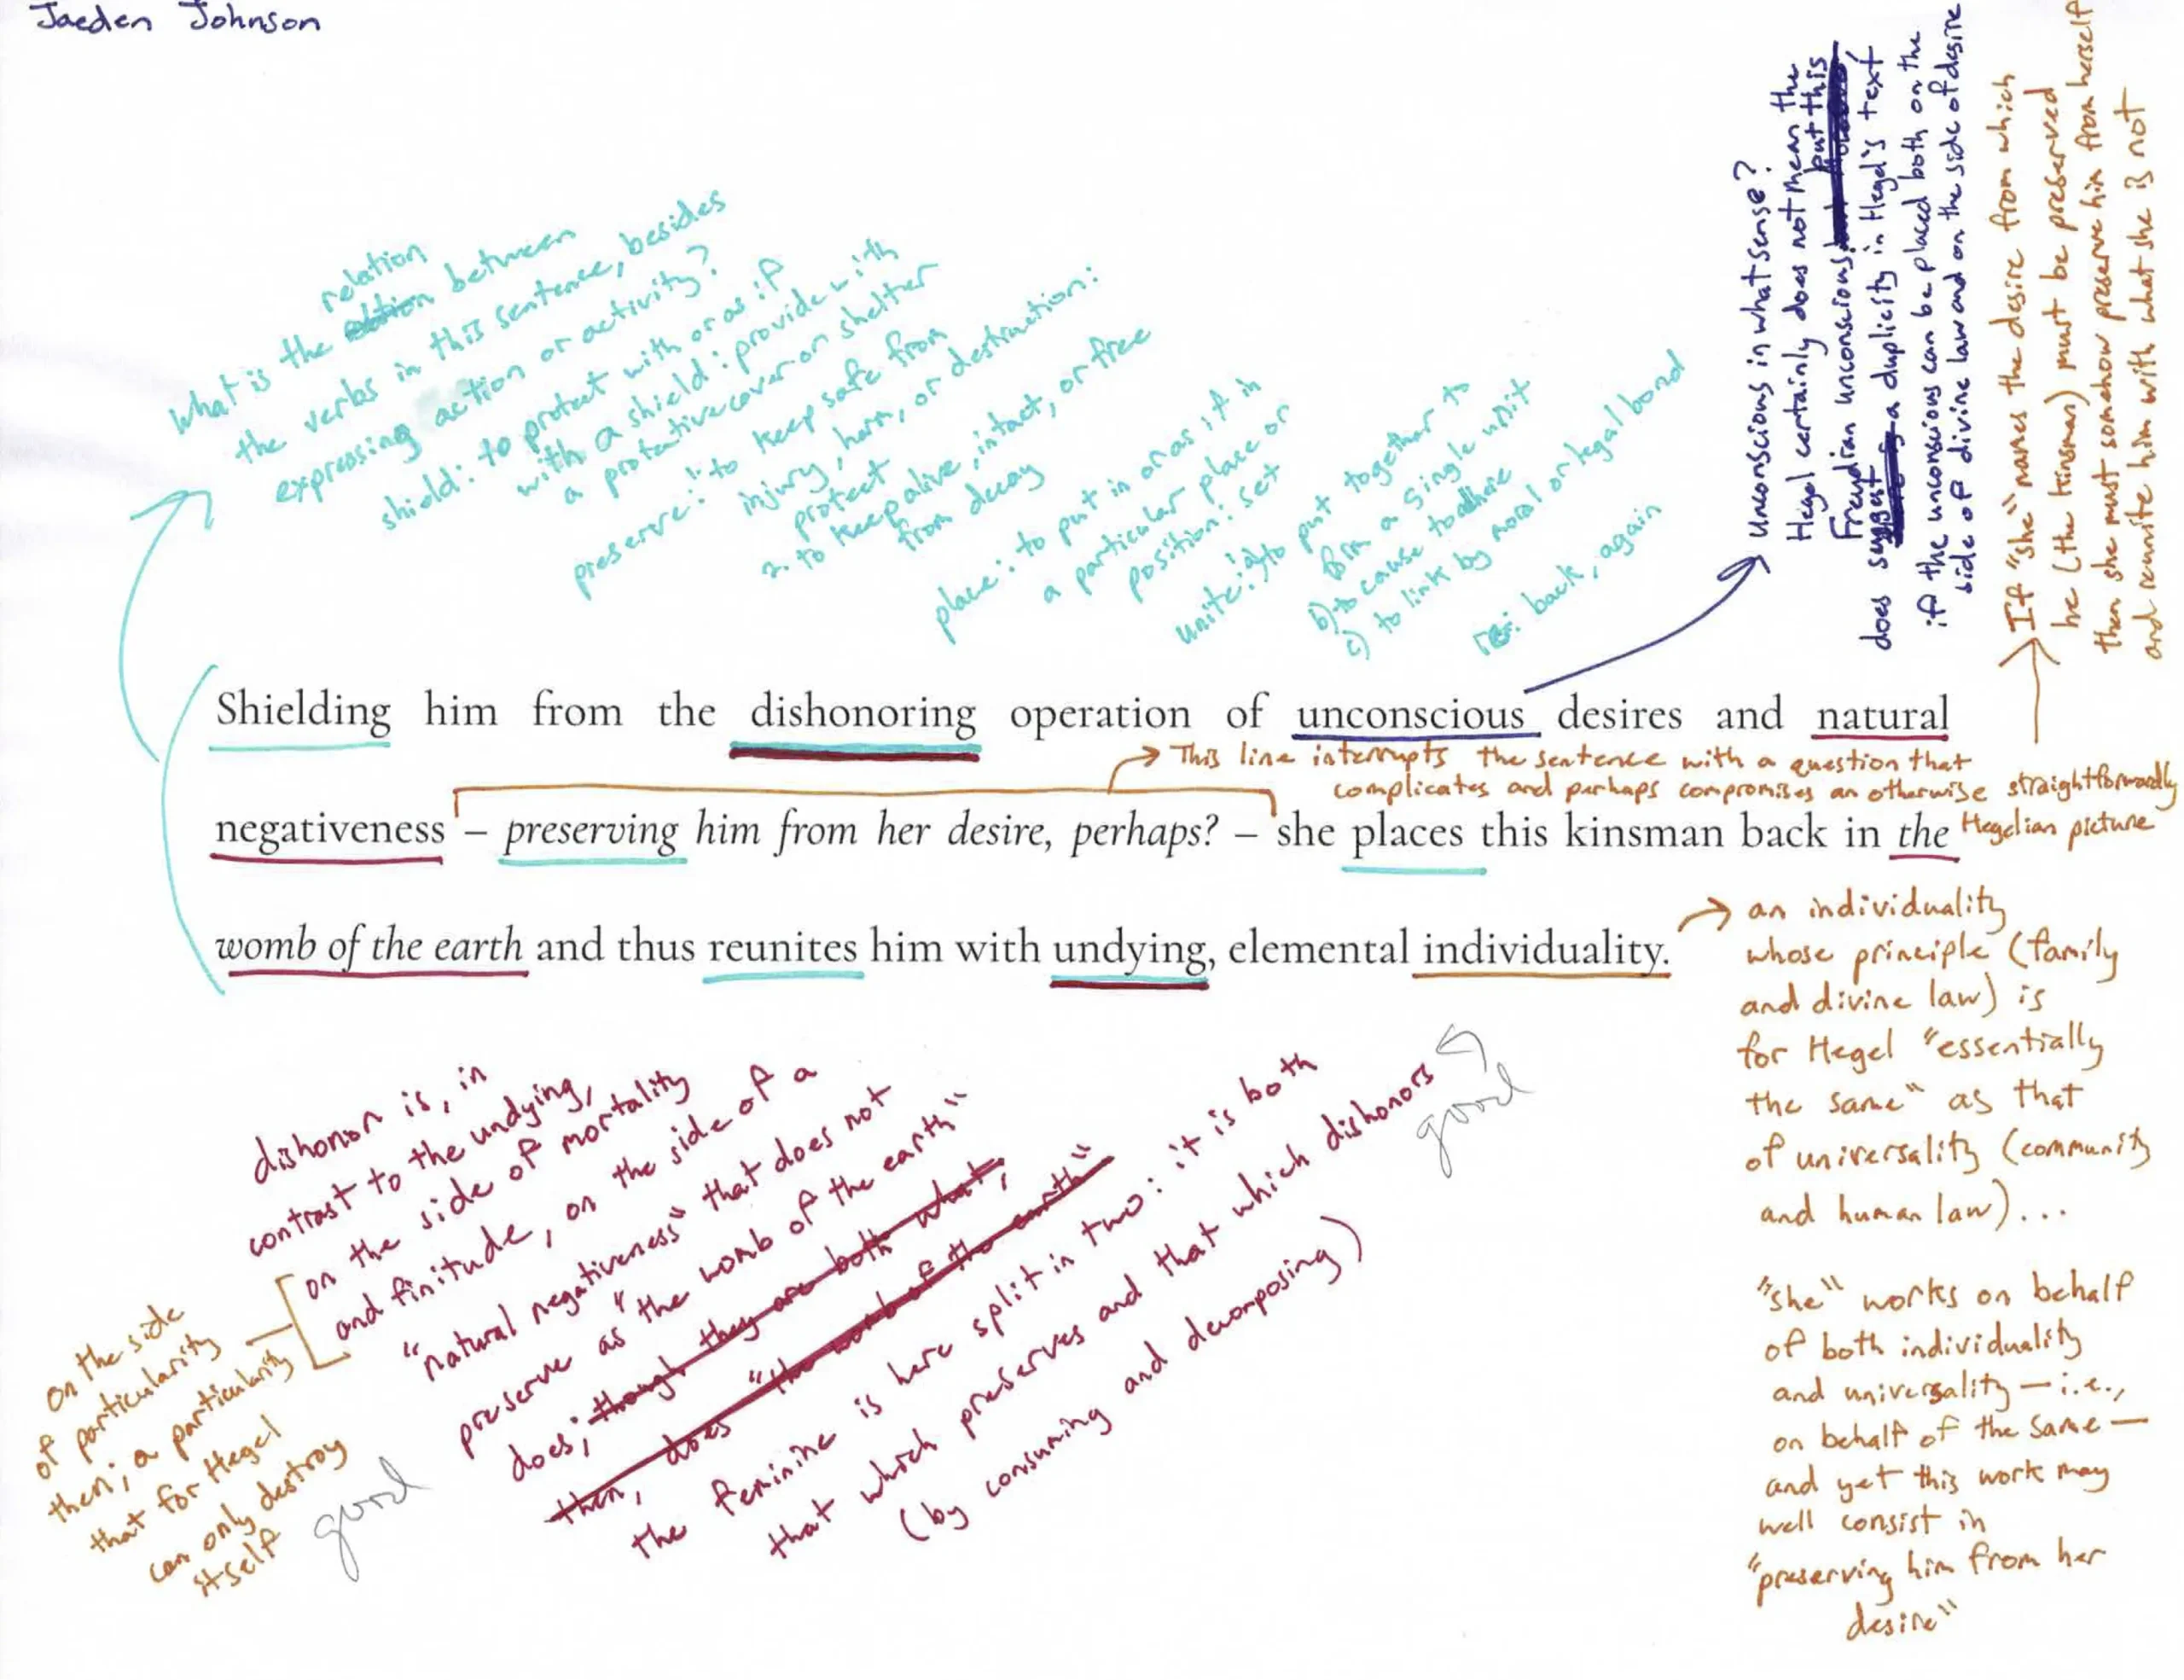 Jaeden Johnson
relation
What is the between
the verbs in this sentence, besides
expressing action or activity?
shield: to protect with or as if
with a shield: provide with
a protective cover or shelter
preserve: "to keep safe from
injury, harm, or destruction:
protect
2. to keep alive, intact, or free
from decay
place: to put in or as if in
a particular place or
position: set
unite: a) to put together to
form a single unit
b) to cause to adhere
c) to link by moral or legal bond
re: back, again
Unconscious in what sense?
Hegel certainly does not mean the
Freudian unconscious, but this
does suggest a duplicity in Hegel's text
if the unconscious can be placed both on the
side of divine law and on the side of desire
If "she" names the desire from which
he (the kinsman) must be preserved
then she must somehow preserve him from herself
and reunite him with what she is not
Shielding him from the dishonoring operation of unconscious desires and natural
This line interrupts the sentence with a question that
complicates and perhaps compromises an otherwise straightforwardly
Hegelian picture
negativeness – preserving him from her desire, perhaps? – she places this kinsman back in the
womb of the earth and thus reunites him with undying, elemental individuality.
an individuality
whose principle (family
and divine law) is
for Hegel "essentially
the same" as that
of universality (community
and human law)...
"she" works on behalf
of both individuality
and universality — i.e.,
on behalf of the same —
and yet this work may
well consist in
"preserving him from her
desire"
dishonor is, in
contrast to the undying,
on the side of mortality
and finitude, on the side of a
"natural negativeness" that does not
preserve as "the womb of the earth"
does; though they are both what,
then, does "the womb of the earth"
the feminine is here split in two: it is both
that which preserves and that which dishonors
(by consuming and decomposing)
good
on the side
of particularity
then; a particularity
that for Hegel
can only destroy
itself
good